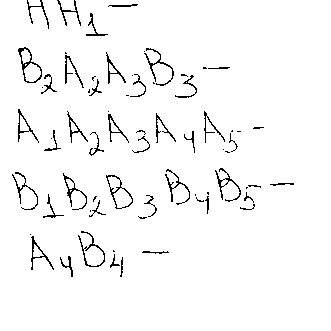 HH₁ —
B₂A₂A₃B₃ —
A₁A₂A₃A₄A₅ -
B₁B₂B₃B₄B₅ —
A₄B₄ —